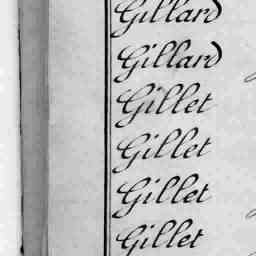 Gillard
Gillard
Gillet
Gillet
Gillet
Gillet